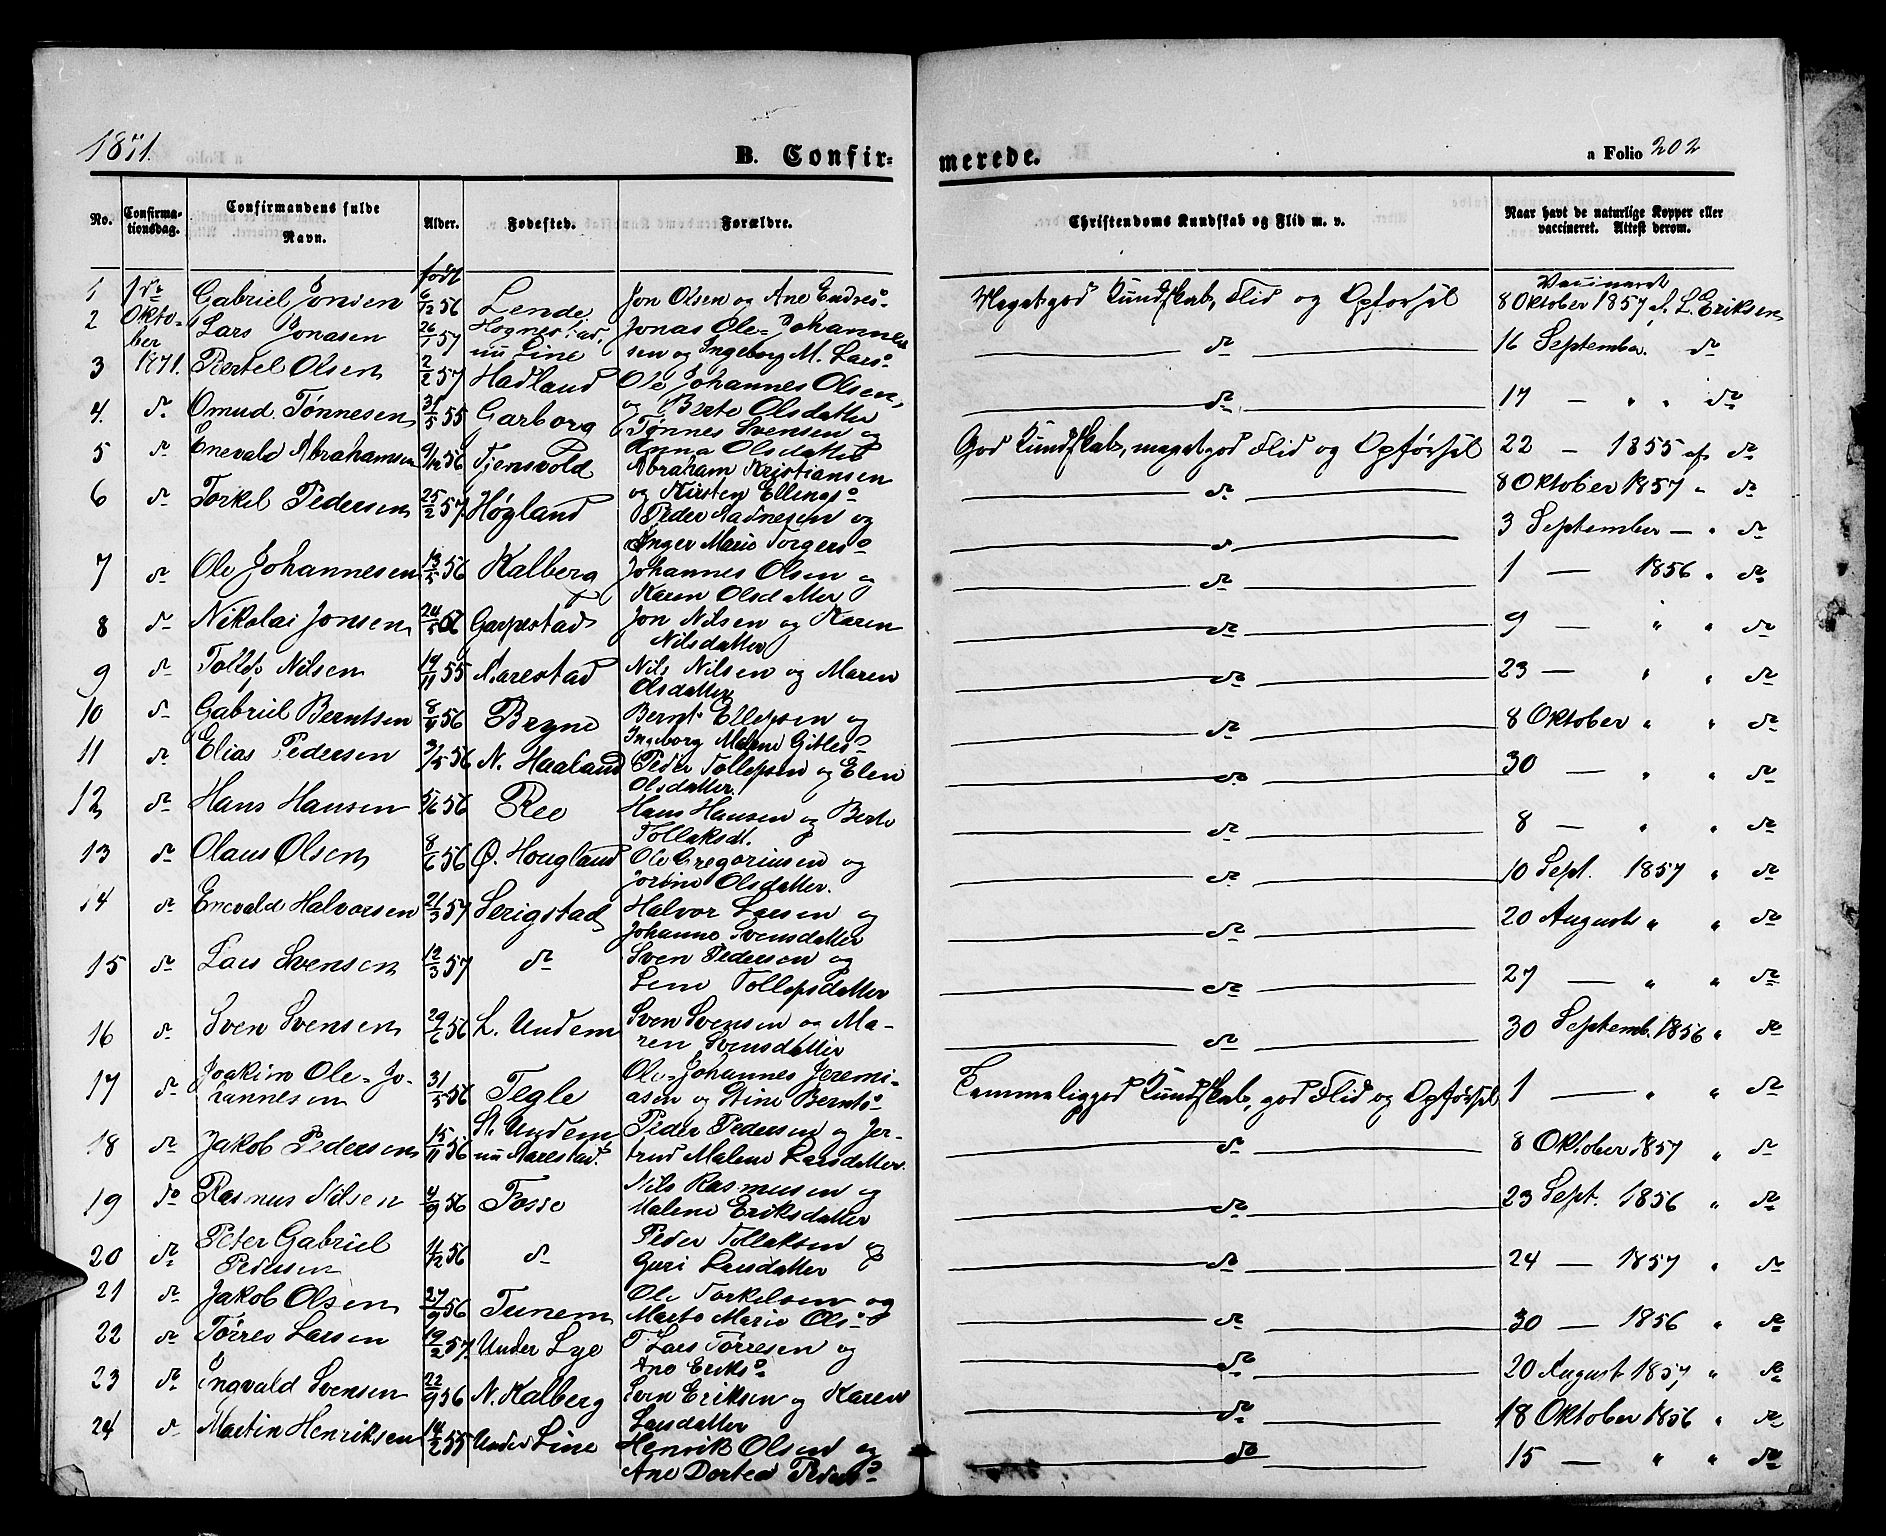 1871.
B. Confir=
merede.
a Folio 202
No.
Confirma-
tionsdag.
Confirmandens fulde
Navn.
Alder.
Fødested.
Forældre.
Christendoms Kundskab og Flid m. v.
Naar havt de naturlige Kopper eller
vaccineret. Attest derom.
født
Vaccineret
1 1ste Gabriel Jonsen 6/12 56 Lende Jon Olsen og Ane Endres⁠d Meget god Kundskab, Flid og Opførsel 8 Oktober 1857 af L. Eriksen
2 Okto- Lars Jonasen 26/1 57 Hognestad, Jonas Ole-Johanne-
ber nu Line sen og Ingeborg M. Larsd do 16 September do
3 1871. Bertel Olsen 2/2 57 Hadland Ole Johannes Olsen,
og Berte Olsdatter do 17 — " " do
4. do Omud Tønnesen 31/5 55 Garborg Tønnes Svensen og
Anna Olsdatter God Kundskab, meget god Flid og Opførsel 22 — 1855 af do
5 do Enevald Abrahamsen 9/12 56 Tjensvold Abraham Kristiansen
og Kirsten Ellingsd do 8 Oktober 1857 " do
6 do Torkel Pedersen 25/2 57 Høgland Peder Aadnesen og
Inger Marie Torgersd do 3 September — " do
7 do Ole Johannesen 13/5 56 Kalberg Johannes Olsen og
Karen Olsdatter do 1 — 1856 " do
8 do Nikolai Jonsen 24/5 56 Garpestad Jon Nilsen og Karen
Nilsdatter do 9 — " " do
9 do Tollef Nilsen 19/11 55 Aarestad Nils Nilsen og Maren
Olsdatter do 23 — " " do
10 do Gabriel Berntsen 8/4 56 Bryne Bernt Ellefsen og
Ingeborg Malene Gitlesd do 8 Oktober " " do
11 do Elias Pedersen 3/5 56 N. Haaland Peder Tollefsen og Elen
Olsdatter do 30 — " " do
12 do Hans Hansen 5/6 56 Ree Hans Hansen og Berte
Tollaksdt. do 8 — " " do
13 do Olaus Olsen 8/6 56 Ø. Hougland Ole Gregoriusen og
Jorine Olsdatter. do 10 Sept. 1857 " do
14 do Enevald Halvorsen 21/3 57 Serigstad Halvor Larsen og
Johanne Svensdatter do 20 August " " do
15 do Lars Svensen 12/3 57 do Sven Pedersen og
Lene Tollefsdatter do 27 — " " do
16 do Sven Svensen 29/6 56 L. Undem Sven Svensen og Ma-
ren Svensdatter do 30 Septemb. 1856 " do
17 do Joakim Ole-Jo- 31/5 56 Tegle Ole-Johannes Jeremi-
hannesen asen og Stine Berntsd Temmelig god Kundskab, god Flid og Opførsel 1 — " " do
18 do Jakob Pedersen 15/11 56 St. Undem Peder Pedersen og Jer-
nu Aarestad. trud Malene Larsdatter. do 8 Oktober 1857 " do
19 do Rasmus Nilsen 4/9 56 Fosse Nils Rasmusen og
Malene Eriksdatter do 23 Sept. 1856 " do
20 do Peter Gabriel 4/12 56 do Peder Tollaksen og
Pedersen Guri Larsdatter do 24 — 1857 " do
21 do Jakob Olsen 27/9 56 Tunem Ole Torkelsen og
Marte Marie Olsd do 30 — 1856 " do
22 do Tørres Larsen 19/2 57. Under Lye T. Lars Tørresen og
Ane Eriksd do 20 August 1857 " do
23 do Ingvald Svensen 22/9 56 N. Kalberg Sven Eriksen og Karen
Larsdatter do 18 Oktober 1856 " do
24 do Martin Henriksen 14/2 55 Under Line Henrik Olsen og
Ane Dortea Pedersd do 15 — " " do